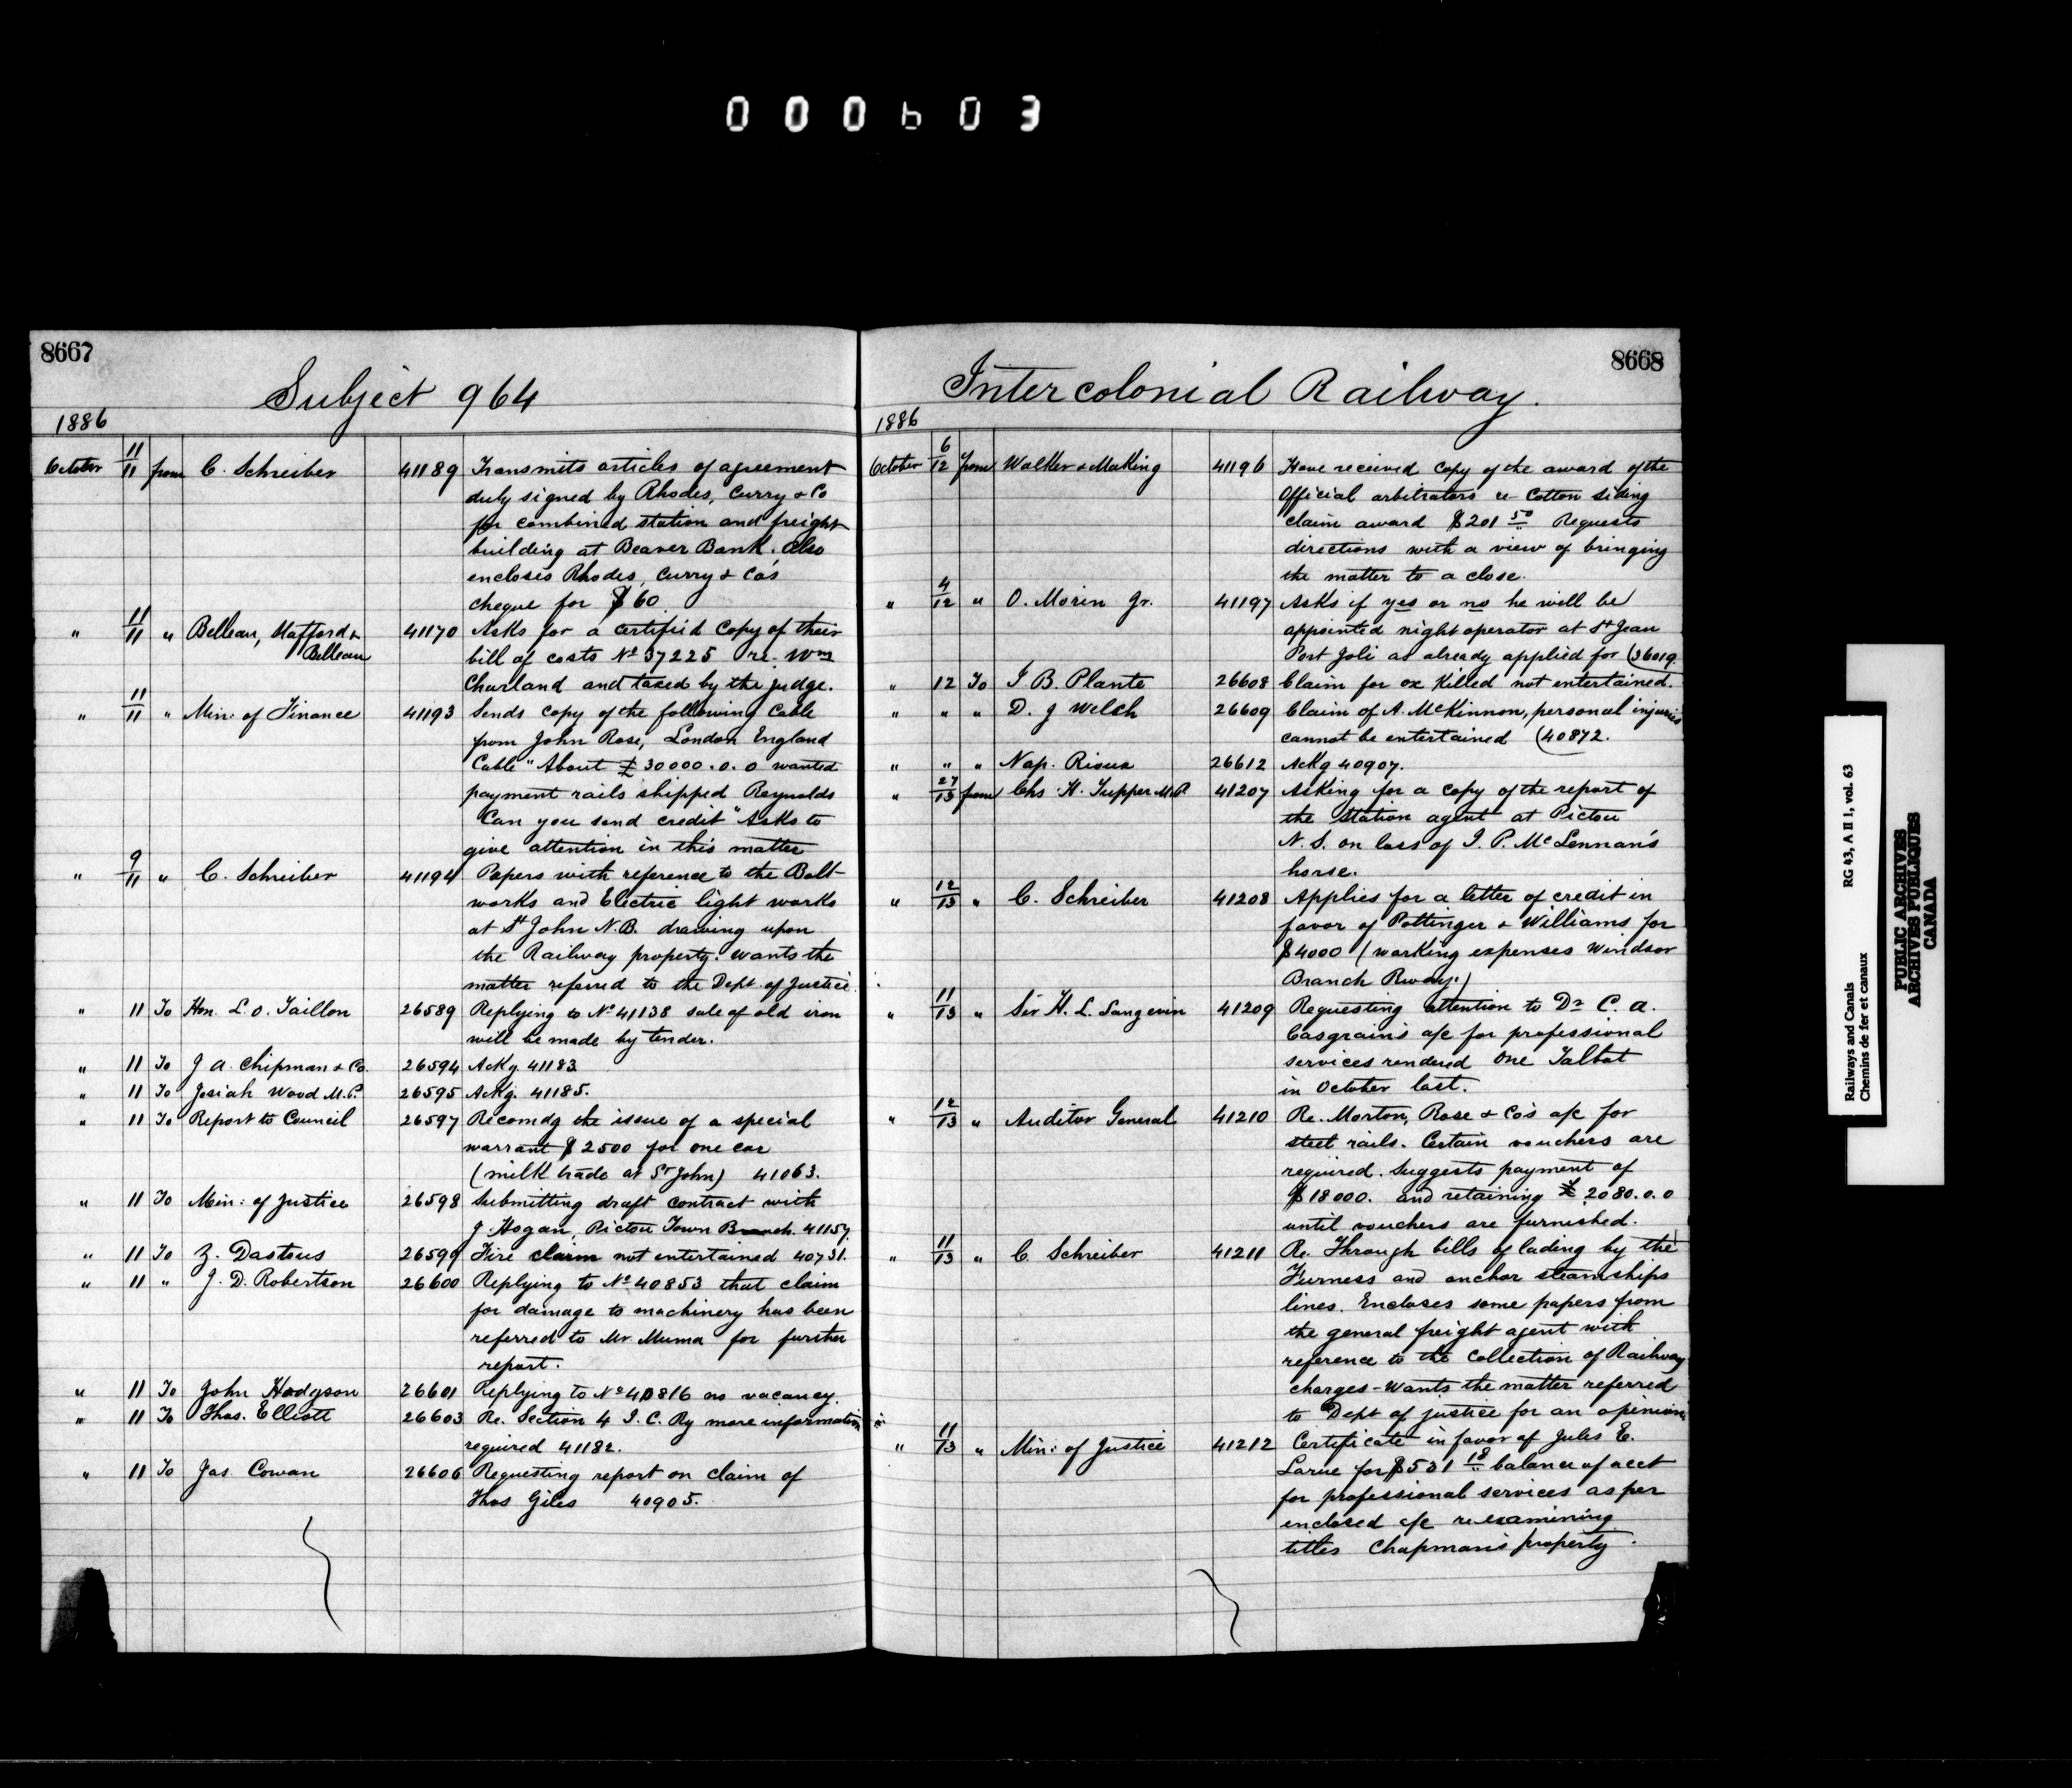 000603
8667
Subject 964
1886
October 11/11 from C. Schreiber 41189 Transmits articles of agreement
duly signed by Rhodes, Curry & Co
for combined station and freight
building at Beaver Bank. also
encloses Rhodes, Curry & Co's
cheque for $60
" 11/11 " Belleau, Stafford & Belleau 41170 Asks for a certified copy of their
bill of costs No 37225 re. Wm
Charland and taxed by the judge.
" 11/11 " Min: of Finance 41193 Sends copy of the following Cable
from John Rose, London England
Cable "About £30000.0.0 wanted
payment rails shipped Reynolds
Can you send credit" Asks to
give attention in this matter
" 9/11 " C. Schreiber 41194 Papers with reference to the Bolt-
works and Electric light works
at St John N.B. drawing upon
the Railway property. Wants the
matter referred to the Dept. of Justice.
" 11 To Hon. L. O. Taillon 26589 Replying to No 41138 sale of old iron
will be made by tender.
" 11 To J A. Chipman & Co. 26594 Ackg 41183
" 11 To Josiah Wood M.P. 26595 Ackg. 41185.
" 11 To Report to Council 26597 Recomdg the issue of a special
warrant $2500 for one car
(milk trade at St John) 41063.
" 11 To Min: of Justice 26598 Submitting draft contract with
J. Hogan, Pictou Town Branch. 41157.
" 11 To Z. Dastous 26599 Fire claim not entertained 40731.
" 11 " J. D. Robertson 26600 Replying to No 40853 that claim
for damage to machinery has been
referred to Mr Muma for further
report.
" 11 To John Hodgson 26601 Replying to No 40816 no vacancy.
" 11 To Thos. Elliott 26603 Re. Section 4 I. C. Ry more information
required 41182.
" 11 To Jas Cowan 26606 Requesting report on claim of
Thos Giles 40905.
8668
Intercolonial Railway.
1886
October 6/12 from Walker & Making 41196 Have received copy of the award of the
Official arbitrators re Cotton siding
claim award $201 50 Requests
directions with a view of bringing
the matter to a close.
" 4/12 " O. Morin Jr. 41197 Asks if yes or no he will be
appointed night operator at St Jean
Port Joli as already applied for (36019.
" 12 To J B. Plante 26608 Claim for ox killed not entertained.
" " " D. J Welch 26609 Claim of A. McKinnon, personal injuries
cannot be entertained (40872.
" " " Nap. Rioux 26612 Ackg 40907.
" 27/13 from Chs. H. Tupper M.P. 41207 Asking for a copy of the report of
the station agent at Pictou
N. S. on loss of J. P. McLennan's
horse.
" 12/13 " C. Schreiber 41208 Applies for a letter of credit in
favor of Pottinger & Williams for
$4000 (working expenses Windsor
Branch Rway.)
" 11/13 " Sir H. L. Langevin 41209 Requesting attention to Dr C. A.
Casgrain's a/c for professional
services rendered one Talbot
in October last.
" 12/13 " Auditor General 41210 Re. Morton, Rose & Co's a/c for
steel rails. Certain vouchers are
required. Suggests payment of
$18000. and retaining £2080.0.0
until vouchers are furnished.
" 11/13 " C. Schreiber 41211 Re. Through bills of lading by the
Furness and anchor steamships
lines. Encloses some papers from
the general freight agent with
reference to the collection of Railway
charges - Wants the matter referred
to Dept of justice for an opinion.
" 11/13 " Min: of Justice 41212 Certificate in favor of Jules E.
Larue for $531 18 balance of acct
for professional services as per
enclosed a/c re examining
titles Chapman's property.
Railways and Canals RG 43, A II 1, vol. 63
Chemins de fer et canaux
PUBLIC ARCHIVES
ARCHIVES PUBLIQUES
CANADA